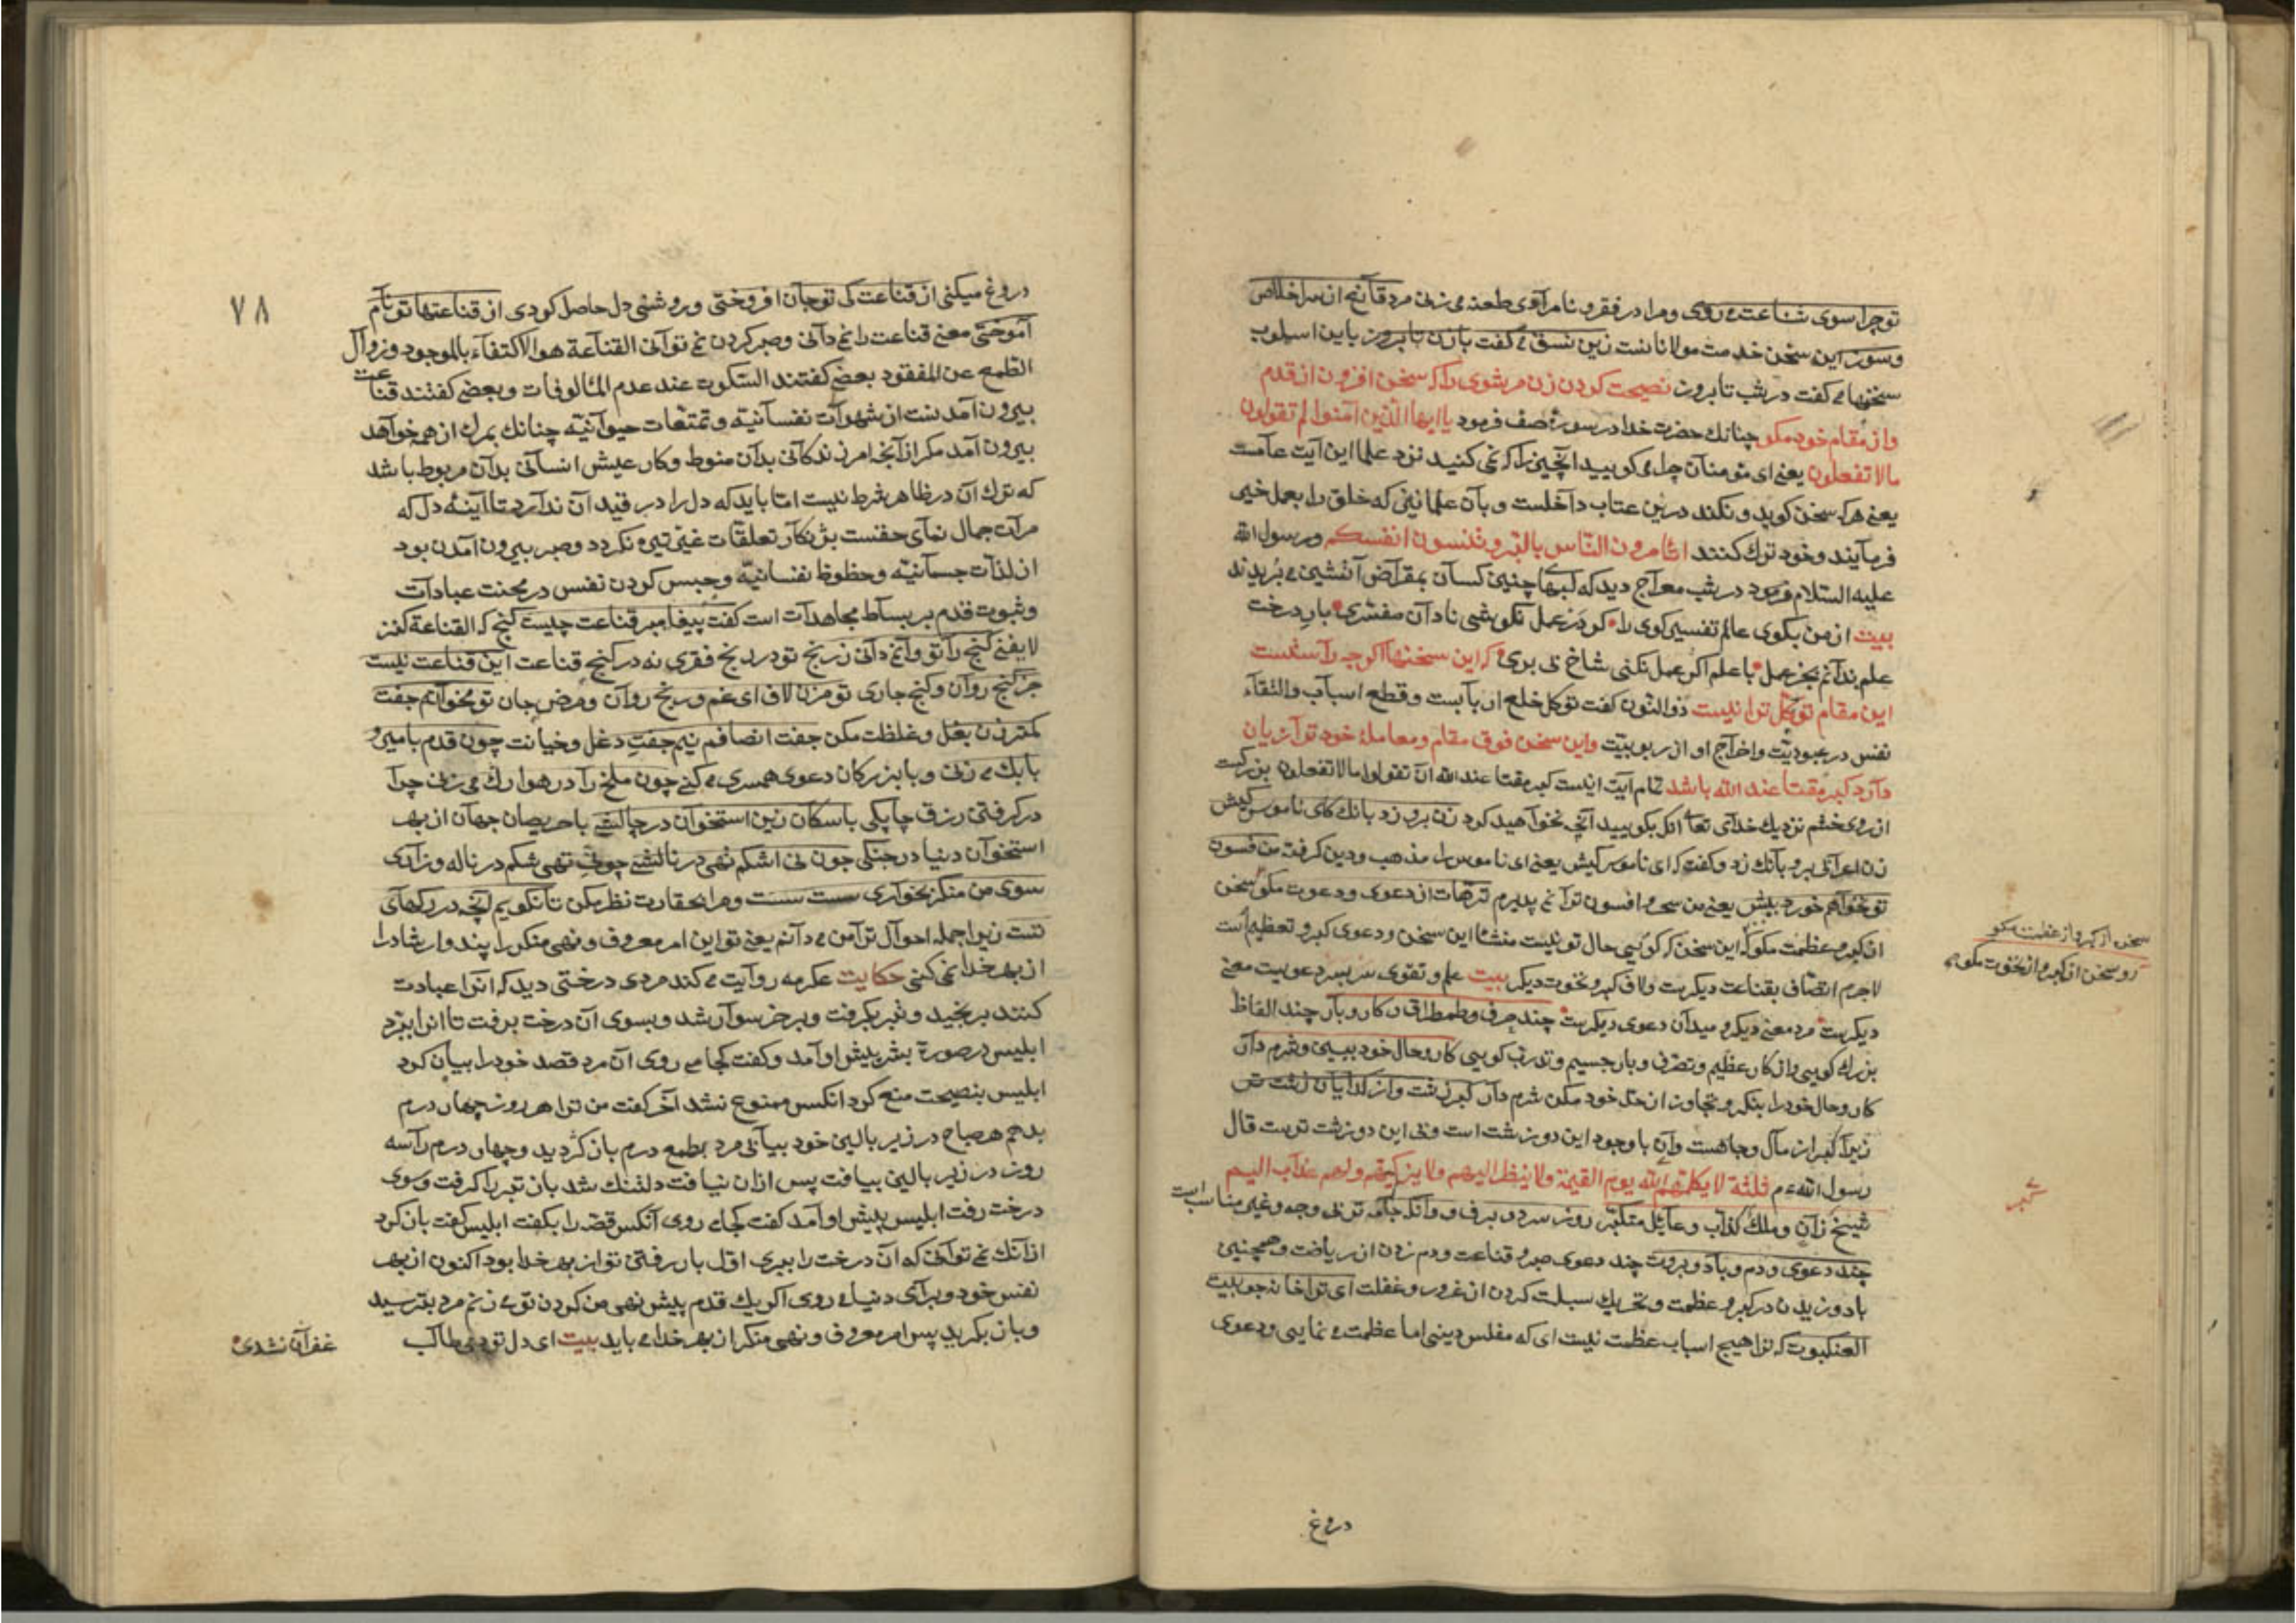 توچرا سوی شناعت می روی ومرا در فقر و نامرادی طعنه می زنی مرد قانع از سر اخلاص
وسوز این سخن خدمت مولاناست زین نسق می گفت با زن تا بروز باین اسلوب
سخنها می گفت در شب تا بروز نصیحت کردن زن مر شوی را که سخن افزون از قدم
واز مقام خود مکو چنانك حضرت خدا در سورۀ صف فرمود یا ایها الذین آمنوا لم تقولون
مالا تفعلون یعنی ای مؤمنان چرا می کویید آنچیز را که نمی کنید نزد علما این آیت عامست
یعنی هرکه سخن کوید ونکند درین عتاب داخلست و بآن علمانیز که خلق را بعمل خیر
فرمایند وخود ترك کنند اتامرون الناس بالبر وتنسون انفسکم ورسول الله
علیه السلام فرمود در شب معراج دید که لبهاء چنین کسان بمقراض آتشین می بریدند
بیت از من بکوی عالم تفسیر کوی را کر در عمل نکوشی نادان مفسری بار درخت
علم ندانم بجز عمل با علم اکر عمل نکنی شاخ بی بری که این سخنها اکرچه راستست
این مقام توکل ترا نیست ذوالنون کفت توکل خلع اربابست وقطع اسباب والتقاء
نفس در عبودیت واخراج او از ربوبیت واین سخن فوق مقام ومعاملۀ خود ترا زیان
دارد کبر مقتا عند الله باشد تمام آیت اینست کبر مقتا عند الله ان تقولوا مالا تفعلون بزرکست
از روی خشم نزدیك خدای تعالی آنك بکویید آنچه نخواهید کرد زن برو زد بانك کای ناموس کیش
زن اعرابی برو بانك زد وکفت که ای ناموس کیش یعنی ای ناموس را مذهب ودین کرفته من فسون
تو نخواهم خورد بیش یعنی من سحر وافسون ترا نمی پذیرم ترهات از دعوی ودعوت مکو سخن
از کبر وعظمت مکو که این سخن که کویی حال تو نیست منشاء این سخن ودعوی کبر وتعظیم است
لاجرم اتصاف بقناعت دیکرست ولاف کبر ونخوت دیکر بیت علم وتقوی سربسر دعویست معنی
دیکرست مرد معنی دیکر ومیدان دعوی دیکرست چند حرف وطمطراق وکار وبار چند الفاظ
بزرك کویی واز کار عظیم وتصرف وبار جسیم کویی کار وحال خود ببین وشرم دار
کار وحال خود را بنکر وتجاوز از حد خود مکن شرم دار کبر زشت واز کدایان زشت تر
زیرا کبر از مال وجاهست وآن با وجود این دو زشت است وبی این دو زشت ترست قال
رسول الله عم ثلثة لا یکلمهم الله یوم القیمة ولا ینظر الیهم ولا یزکیهم ولهم عذاب الیم
شیخ زان وملك کذاب وعائل متکبر روز سرد وبرف وانکه جامه تر بی وجه وغیر مناسب است
چند دعوی ودم وباد وبروت چند دعوی صبر وقناعت ودم زدن از ریاضت وهمچنین
باد وزیدن در کبر وعظمت وتحریك سبلت کردن از غرور وغفلت ای ترا خانه چو بیت
العنکبوت که ترا هیچ اسباب عظمت نیست ای که مفلس دینی اما عظمت می نمایی ودعوی
سخن از کبر واز عظمت مکو
رو سخن از کبر واز نخوت مکو
کبر
دروغ
٧٨
دروغ میکنی از قناعت کی تو جان افروختی وروشنی دل حاصل کردی از قناعتها تو نام
آموختی معنی قناعت را نمی دانی وصبر کردن نمی توانی القناعة هو الاکتفاء بالموجود وزوال
الطمع عن المفقود بعضی کفتند السکون عند عدم المألوفات وبعضی کفتند قناعت
بیرون آمدنست از شهوات نفسانیه وتمتعات حیوانیه چنانك بمرك از همه خواهد
بیرون آمد مکر از آنچه امر زندکانی بدان منوط وکار عیش انسانی بدان مربوط باشد
که ترك آن در ظاهر شرط نیست اما باید که دل را در قید آن ندارد تا آینۀ دل که
مرآت جمال نمای حقست بژنکار تعلقات غیر تیره نکردد وصبر بیرون آمدن بود
از لذات جسمانیه وحظوظ نفسانیه وحبس کردن نفس در محنت عبادات
وثبوت قدم بر بساط مجاهدات است کفت پیغامبر قناعت چیست کنج که القناعة کنز
لا یفنی کنج را تو وا نمی دانی ز رنج تو در رنج فقری نه در کنج قناعت این قناعت نیست
جز کنج روان وکنج جاری تو مزن لاف ای غم ورنج روان ومرض جان تو مخوانم جفت
کمتر زن بغل وغلظت مکن جفت انصافم نیم جفت دغل وخیانت چون قدم با میر و
با بك می زنی وبا بزرکان دعوی همسری می کنی چون ملخ را در هوا رك می زنی چرا
در کرفتن رزق چاپکی با سکان زین استخوان در چالشی با حریصان جهان از بهر
استخوان دنیا در جنکی چون نی اشکم تهی در نالشی چون نی تهی شکم در ناله وزاری
سوی من منکر بخواری سست سست ومرا بحقارت نظر مکن تا نکویم آنچه در رکهای
تست زیرا جمله احوال ترا من می دانم یعنی تو این امر معروف ونهی منکر را پند وارشاد را
از بهر خدا نمی کنی حکایت عکرمه روایت می کند مردی درختی دید که انرا عبادت
کنند برنجید وتبر بکرفت وبر خر سوار شد وبسوی آن درخت برفت تا انرا ببرد
ابلیس در صورة بشر پیش او آمد وکفت کجا می روی آن مرد قصد خود را بیان کرد
ابلیس بنصیحت منع کرد انکس ممنوع نشد آخر کفت من ترا هر روز چهار درم
بدهم هر صباح در زیر بالین خود بیابی مرد بطمع درم باز کردید وچهار درم را سه
روز در زیر بالین بیافت پس ازان نیافت دلتنك شد باز تبر را کرفت وسوی
درخت رفت ابلیس پیش او آمد کفت کجا می روی آنکس قصه را بکفت ابلیس کفت باز کرد
از آنك نمی توانی که آن درخت را ببری اول بار رفتن تو از بهر خدا بود اکنون از بهر
نفس خود وبرای دنیا می روی اکر یك قدم پیش نهی من کردن تو می زنم مرد بترسید
وباز بکردید پس امر معروف ونهی منکر از بهر خدا می باید بیت ای دل تو دمی طالب
غفران نشدی